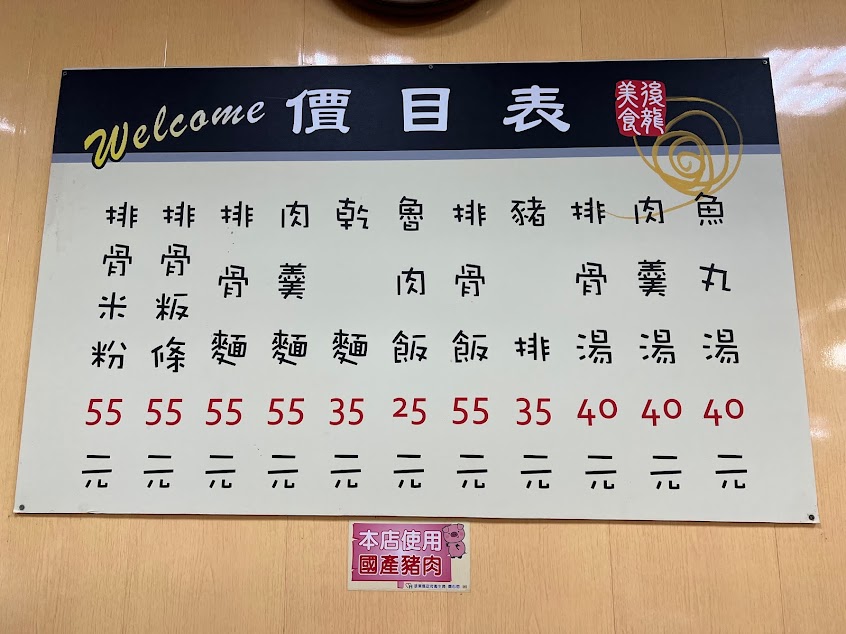 Welcome 價目表
後龍
美食
魚丸湯 40元
肉羹湯 40元
排骨湯 40元
豬排 35元
排骨飯 55元
魯肉飯 25元
乾麵 35元
肉羹麵 55元
排骨麵 55元
排骨粄條 55元
排骨米粉 55元
本店使用
國產豬肉